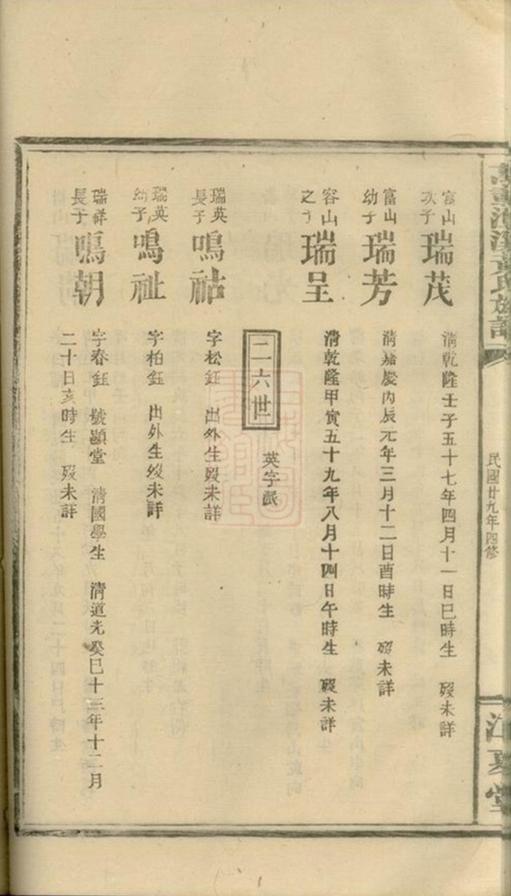 黃氏族譜
民國廿九年四修
江夏堂
富山次子 瑞茂 清乾隆壬子五十七年四月十一日巳時生 歿未詳
富山幼子 瑞芳 清嘉慶丙辰元年三月十二日酉時生 歿未詳
容山之子 瑞呈 清乾隆甲寅五十九年八月十四日午時生 歿未詳
二六世 英字派
瑞英長子 鳴祜 字松鈺 出外生歿未詳
瑞英幼子 鳴祉 字柏鈺 出外生歿未詳
瑞祥長子 鳴朝 字春鈺 號顯堂 清國學生 清道光癸巳十三年十二月
二十日亥時生 歿未詳